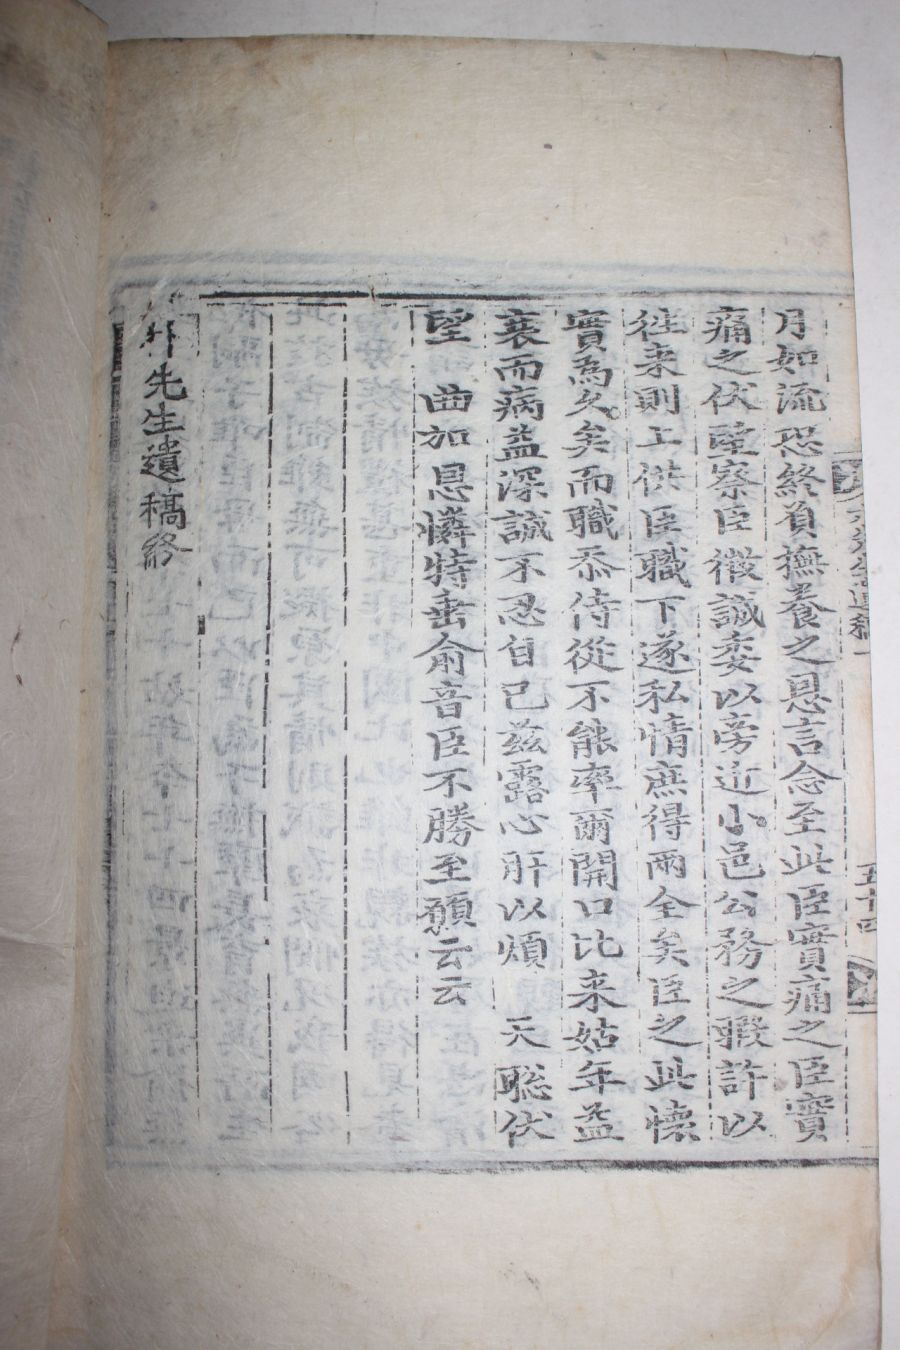 月如流恐終負撫養之恩言念至此臣實痛之臣實
痛之伏望察臣微誠委以旁近小邑公務之暇許以
往来則上供臣職下遂私情庶得兩全矣臣之此懷
實為久矣而職忝侍從不能率爾開口比来姑年益
衰而病益深誠不忍自已兹露心肝以煩 天聡伏
望 曲加恩憐特垂俞音臣不勝至願云云
先生遺稿終
五十四